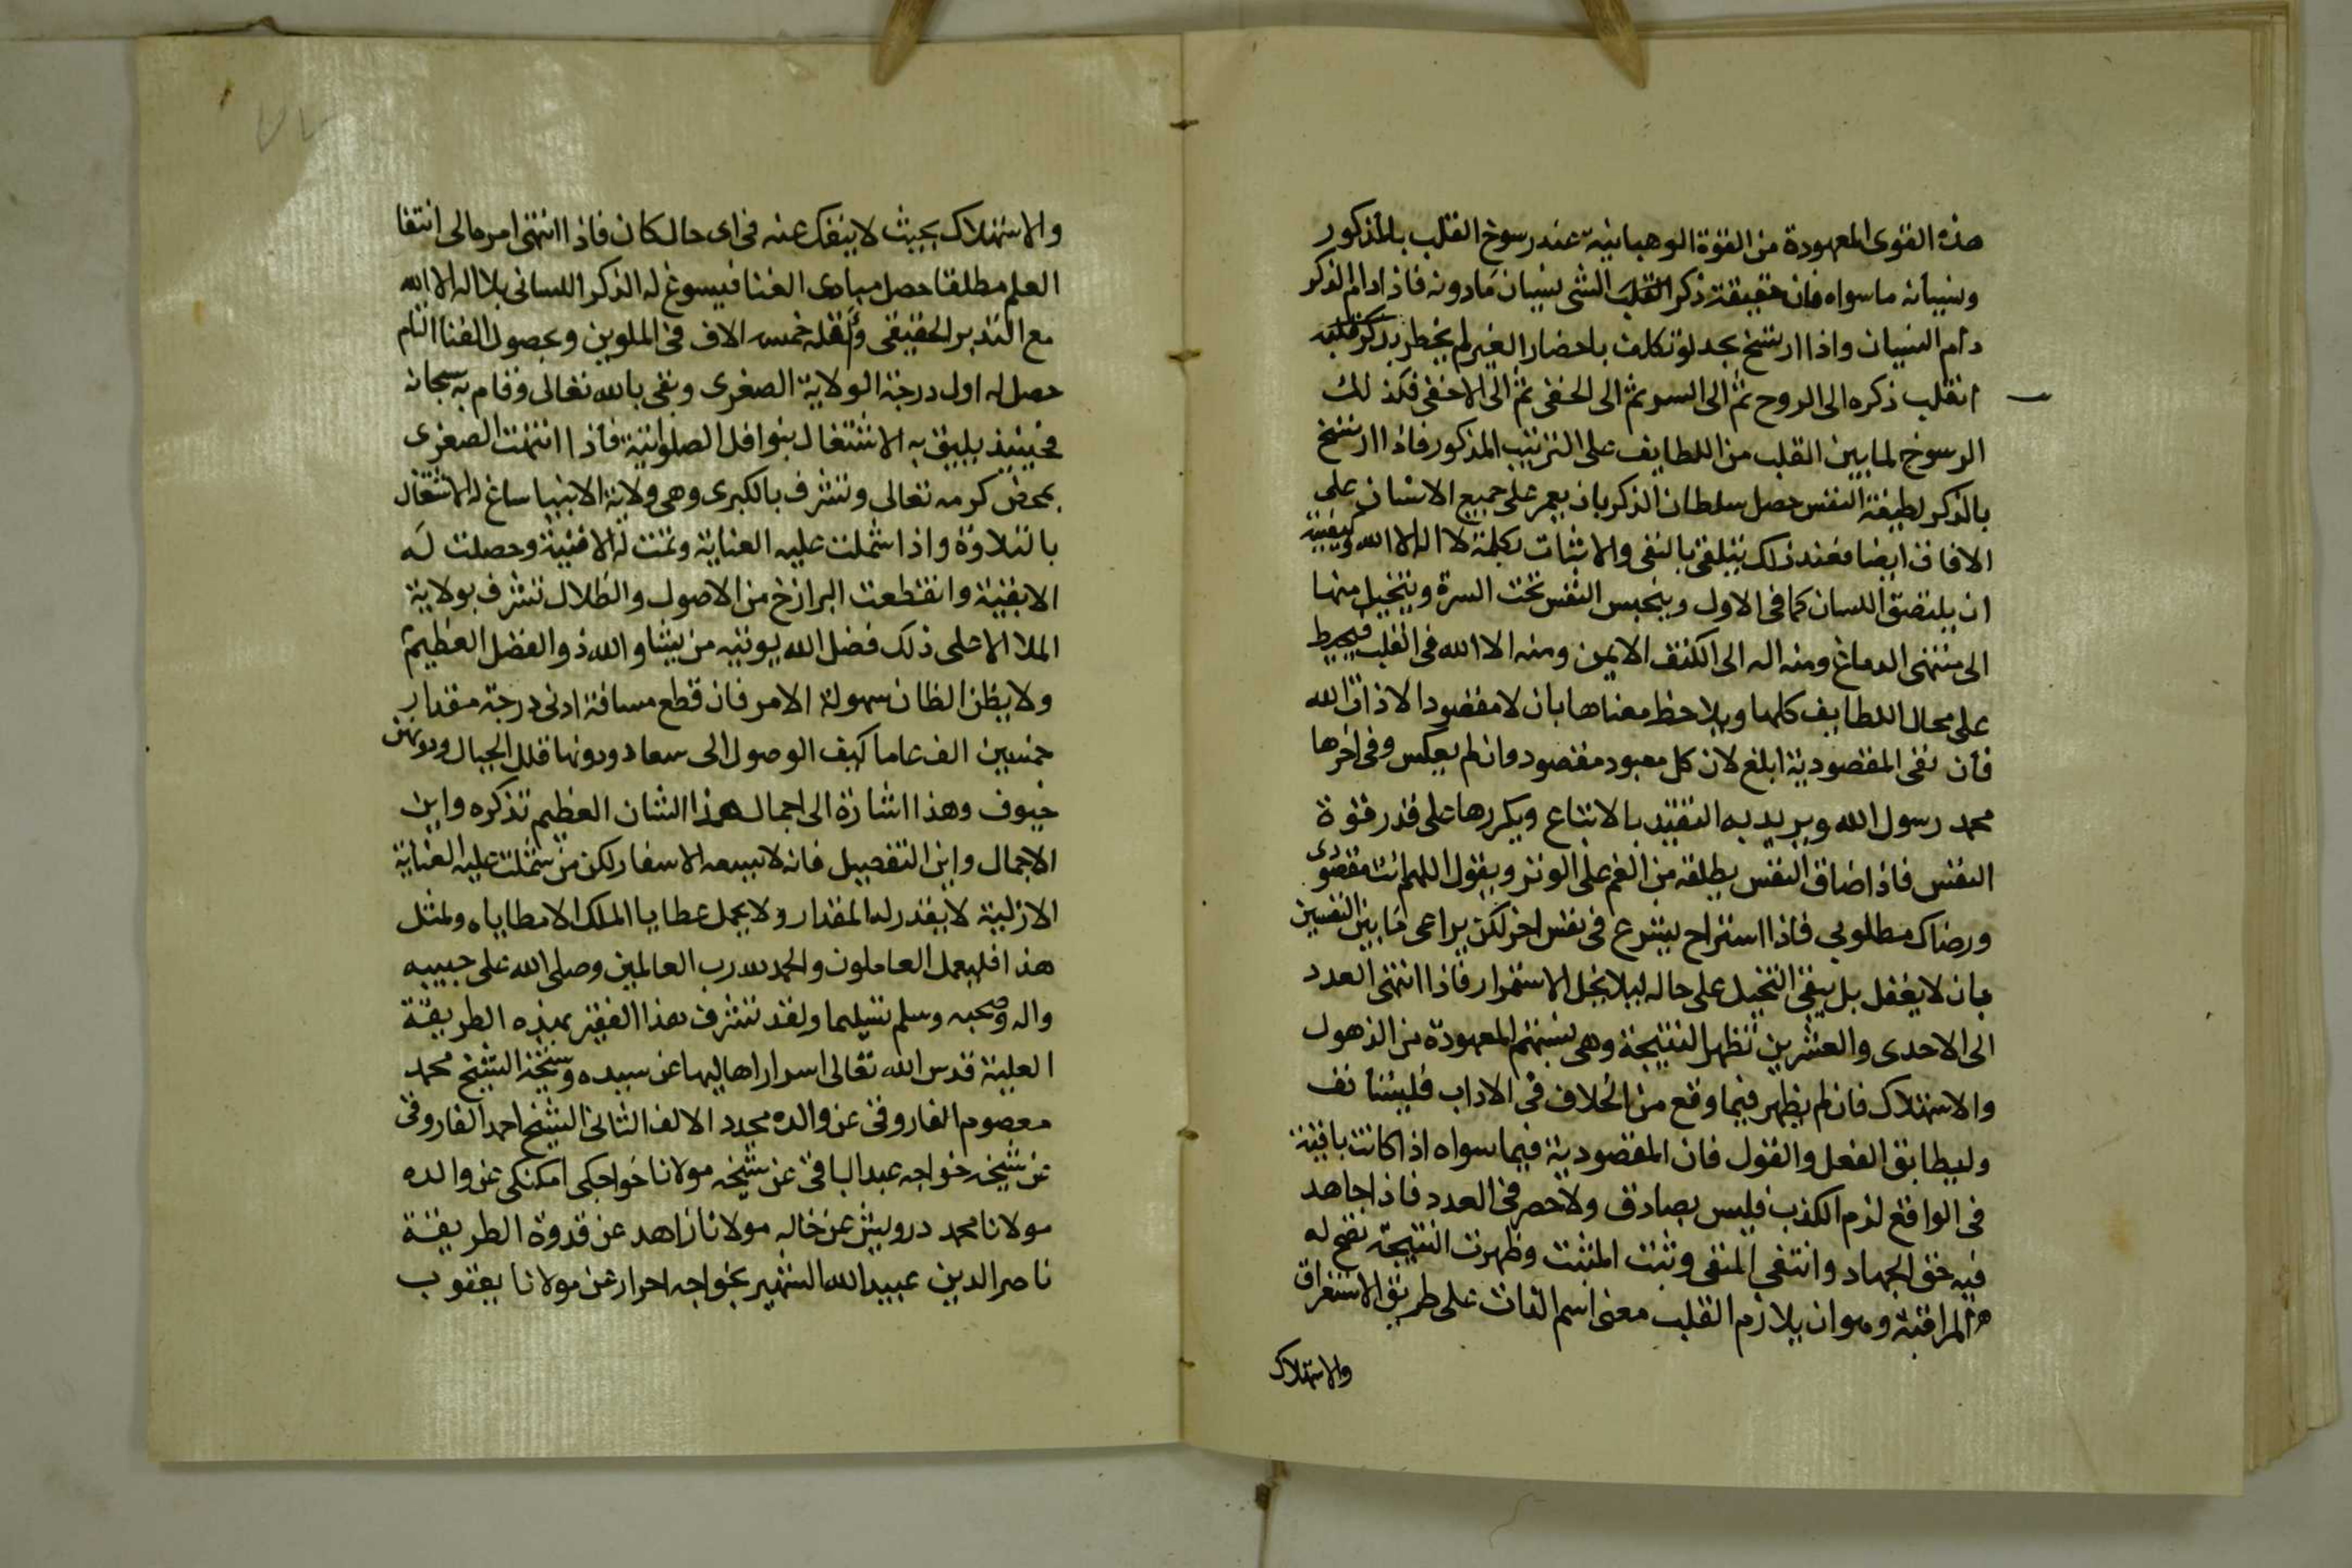 هذه القوى المعهودة من القوة الوهبانية عند رسوخ القلب بالمذكور
ونسيانه ما سواه فان حقيقة ذكر القلب الشى نسيان مادونه فاذا دام الذكر
دام النسيان واذا ارتسخ بحد لو تكلف باحضار الغير لم يخطر بذكر قلبه
انقلب ذكره الى الروح ثم الى السر ثم الى الخفى ثم الى الاخفى فكذلك
الرسوخ لما بين القلب من اللطايف على الترتيب المذكور فاذا ارتسخ
بالذكر لطيفة النفس حصل سلطان الذكر بان يعمر على جميع الانسان على
الافاق ايضا فعند ذلك يتلقى بالنفى والاثبات بكلمة لا اله الا الله وكيفيته
ان يلتصق اللسان كما فى الاول ويحبس النفس تحت السرة ويتخيل منها
الى منتهى الدماغ ومنه اله الى الكتف الايمن ومنه الا الله فى القلب فيحيط
على محال اللطايف كلها ويلاحظ معناها بان لا مقصود الا ذات الله
فان نفى المقصودية ابلغ لان كل معبود مقصود وان لم يعكس وفى اخرها
محمد رسول الله ويريد به التقيد بالاتباع ويكررها على قدر قوة
النفس فاذا ضاق النفس يطلقه من الفم على الوتر ويقول اللهم انت مقصودى
ورضاك مطلوبى فاذا استراح يشرع فى نفس اخر لكن يراعى ما بين النفسين
بان لا يغفل بل يبقى التخيل على حاله ليلا يخل الاستمرار فاذا انتهى العدد
الى الاحدى والعشرين تظهر النتيجة وهى نسبتهم المعهودة من الذهول
والاستهلاك فان لم يظهر فيما وقع من الخلاف فى الاداب فليستانف
وليطابق الفعل والقول فان المقصودية فيما سواه اذا كانت باقية
فى الواقع لزم الكذب فليس بصادق ولا حصر فى العدد فاذا جاهد
فيه حق الجهاد وانتفى المنفى وثبت المثبت وظهرت النتيجة تصح له
المراقبة وهو ان يلازم القلب معنى اسم الذات على طريق الاستغراق
والاستهلاك
والاستهلاك بحيث لا ينفك عنه فى اى حال كان فاذا انتهى امرها الى انتفا
العلم مطلقا حصل مبادى الفنا فيسوغ له الذكر اللسانى بلا اله الا الله
مع التدبر الحقيقى واقله خمسه الاف فى الملوين وبحصول الفنا التام
حصل له اول درجة الولاية الصغرى وبقى بالله تعالى وقام به سبحانه
فحينيذ يليق به الاشتغال بنوافل الصلواتية فاذا انتهت الصغرى
بمحض كرمه تعالى وتشرف بالكبرى وهى ولاية الانبيا ساغ له الاشتغال
بالتلاوة واذا شملت عليه العناية وتمت له الافنية وحصلت له
الابقية وانقطعت البرازخ من الاصول والظلال تشرف بولاية
الملا الاعلى ذلك فضل الله يوتيه من يشا والله ذو الفضل العظيم
ولا يظن الظان سهولة الامر فان قطع مسافة ادنى درجة مقدار
خمسين الف عاما كيف الوصول الى سعاد ودونها قلل الجبال ودونهن
خيوف وهذا اشارة الى اجمال هذا الشان العظيم تذكره واين
الاجمال واين التفصيل فانه لا يسعه الاسفار لكن من شملت عليه العناية
الازلية لا يقدر له المقدار ولا يحمل عطايا الملك الا مطاياه ولمثل
هذا فليعمل العاملون والحمد لله رب العالمين وصلى الله على حبيبه
واله وصحبه وسلم تسليما ولقد تشرف هذا الفقير بهذه الطريقة
العلية قدس الله تعالى اسرار اهاليها عن سيده وشيخه الشيخ محمد
معصوم الفاروقى عن والده مجدد الالف الثانى الشيخ احمد الفاروقى
عن شيخه خواجه عبد الباقى عن شيخه مولانا خواجكى امكنكى عن والده
مولانا محمد درويش عن خاله مولانا زاهد عن قدوة الطريقة
ناصر الدين عبيد الله الشهير بخواجه احرار عن مولانا يعقوب